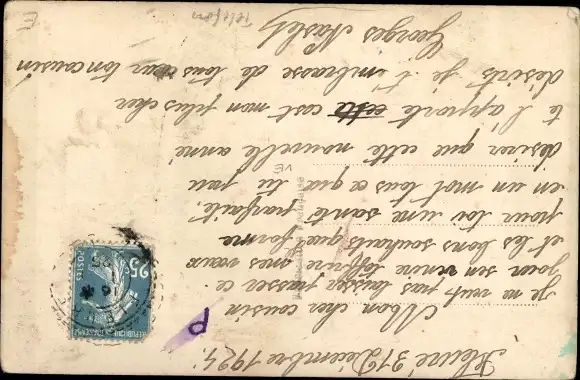 Fleuré 31 Décembre 1924
Mon cher cousin
je ne veut pas laisser passer ce
jour sen venire t'offrire mes vœux
et les bons souhaits que forme
pour toi une santé parfaite,
en un mot tous ce que tu peu
désirer que cette nouvelle anné
te l'apporte cest mon plus cher
désirs je t'embrasse de tous cœur ton cousin
Georges
Telefon
P
25c
POSTES
REPUBLIQUE FRANCAISE